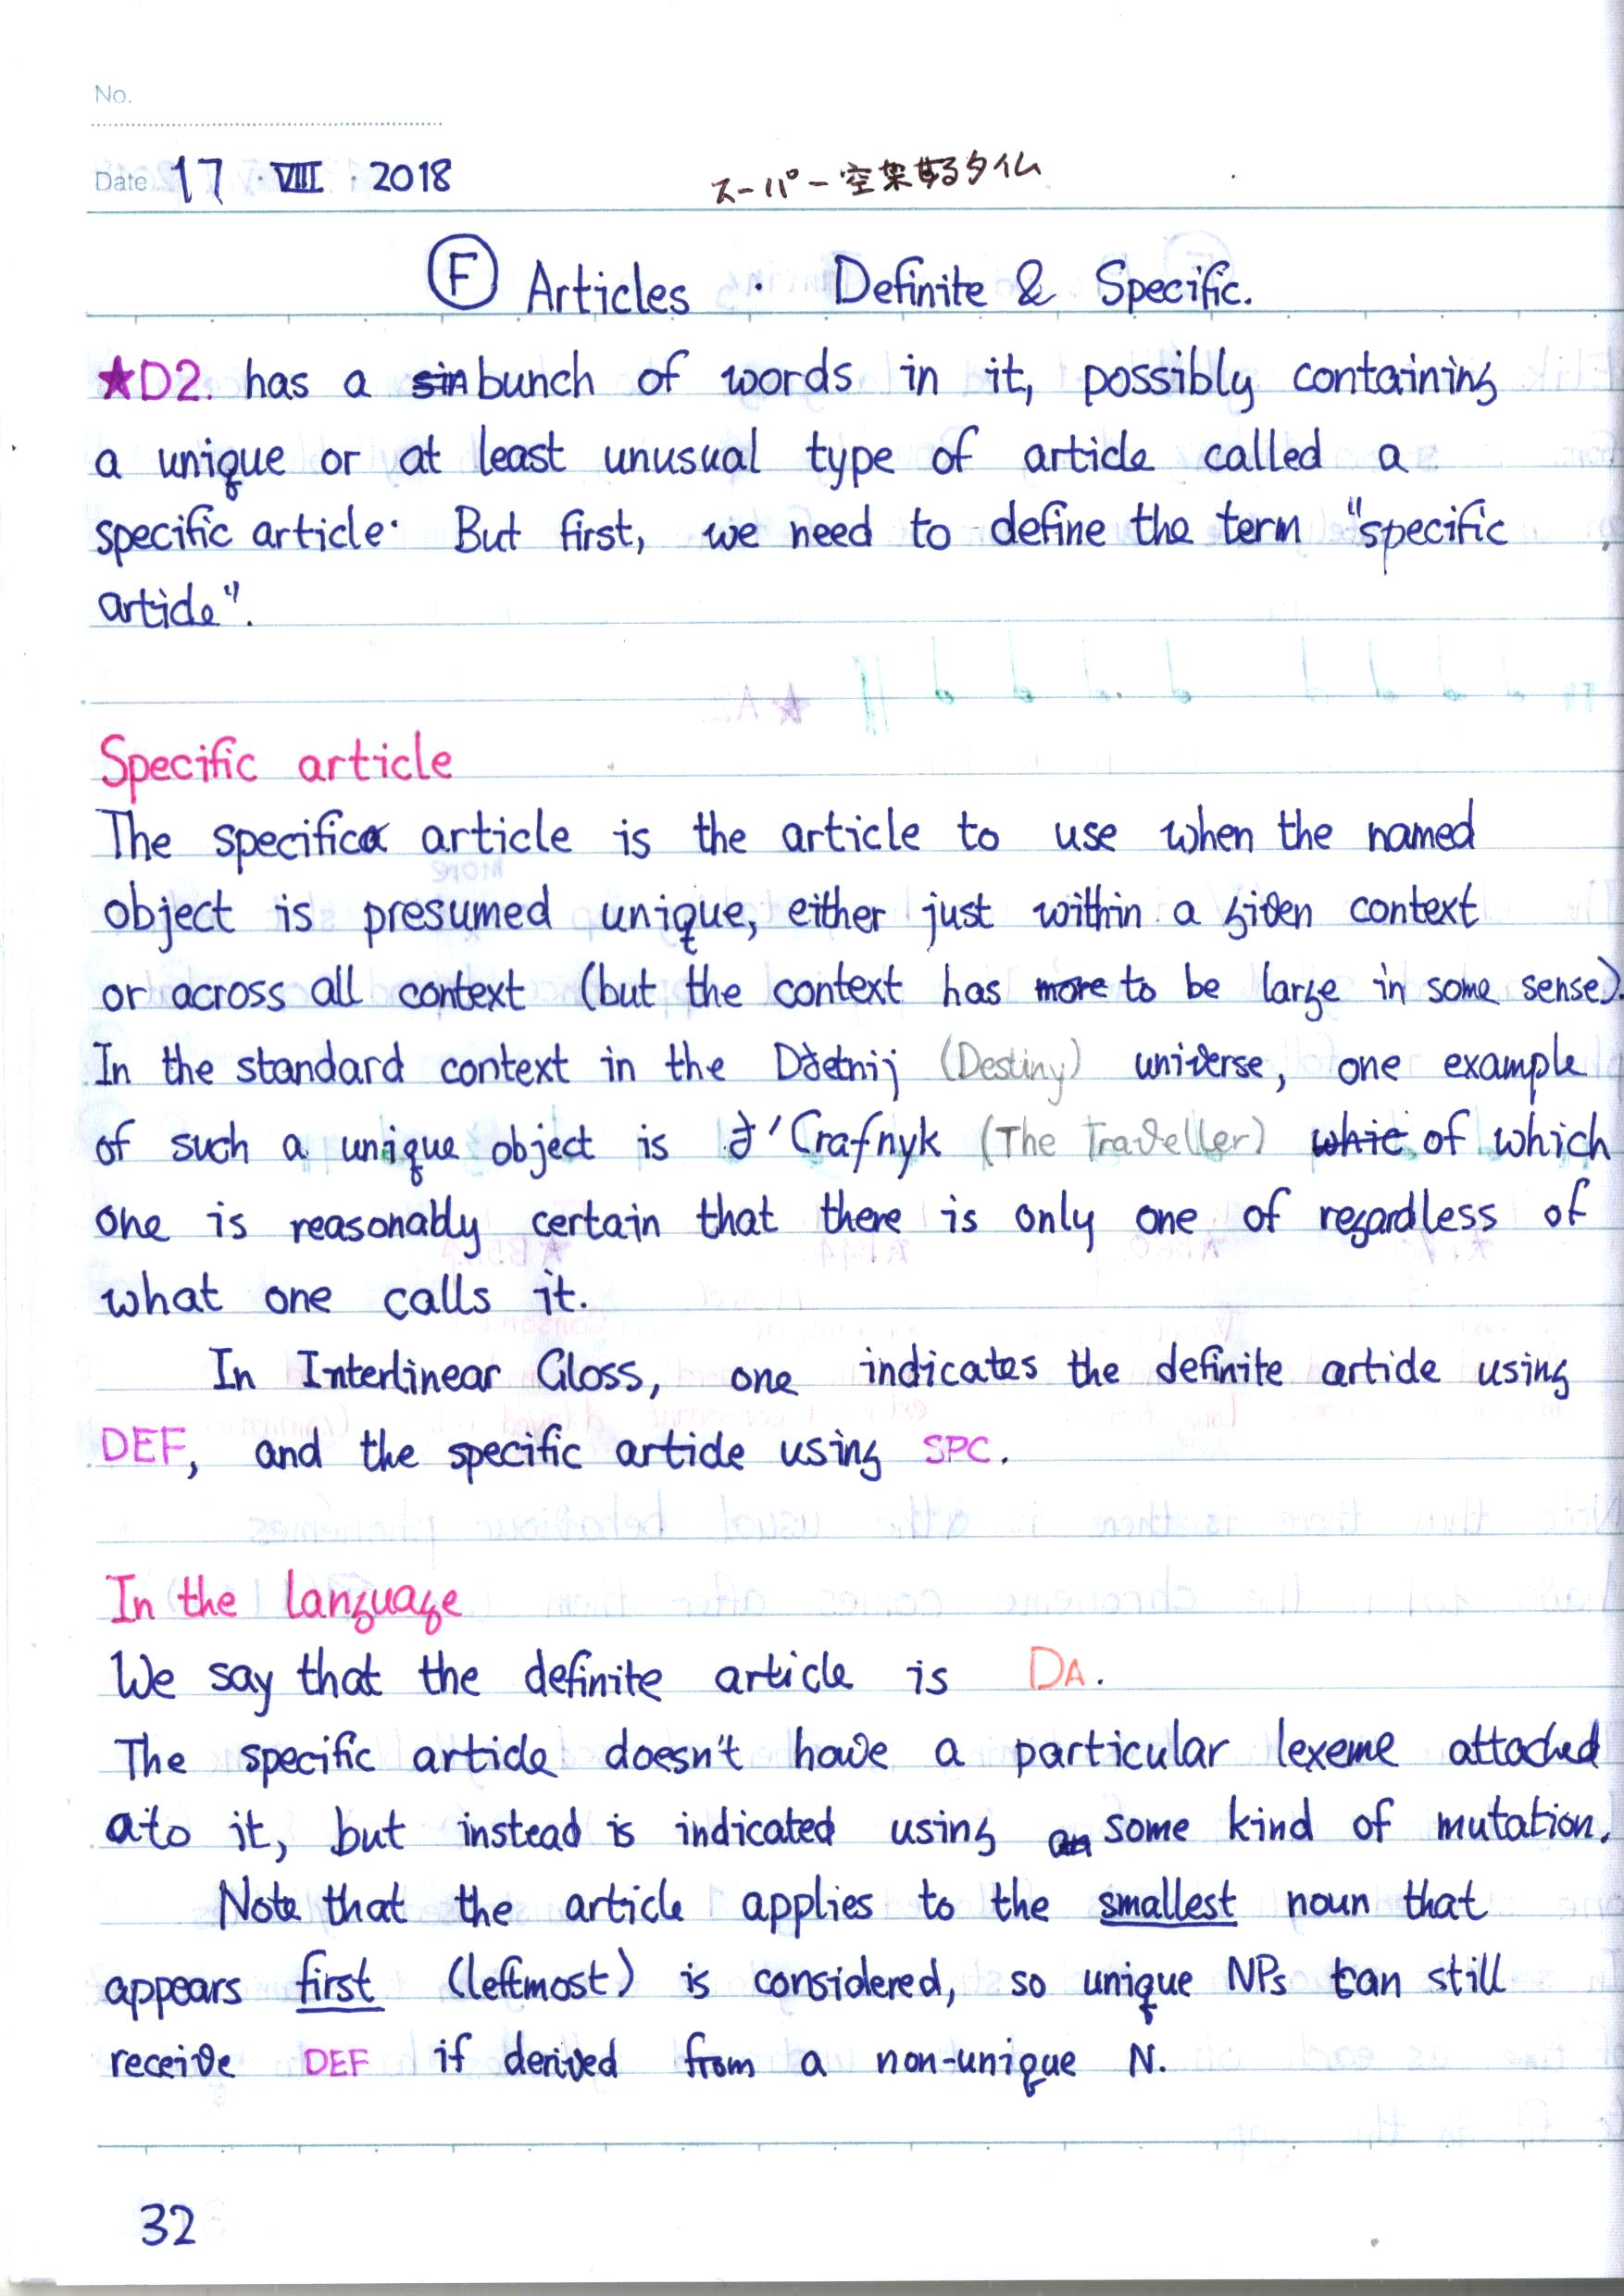 No.
Date 17 · VIII · 2018
スーパー空架するタイム
Ⓕ Articles · Definite & Specific.
★D2. has a sin bunch of words in it, possibly containing
a unique or at least unusual type of article called a
specific article. But first, we need to define the term "specific
article".
Specific article
The specific article is the article to use when the named
object is presumed unique, either just within a given context
or across all context (but the context has more to be large in some sense).
In the standard context in the (Destiny) universe, one example
of such a unique object is Crafnyk (The Traveller) whic of which
one is reasonably certain that there is only one of regardless of
what one calls it.
In Interlinear Gloss, one indicates the definite article using
DEF, and the specific article using SPC.
In the language
We say that the definite article is DA.
The specific article doesn't have a particular lexeme attached
ato it, but instead is indicated using an some kind of mutation.
Note that the article applies to the smallest noun that
appears first (leftmost) is considered, so unique NPs can still
receive DEF if derived from a non-unique N.
32